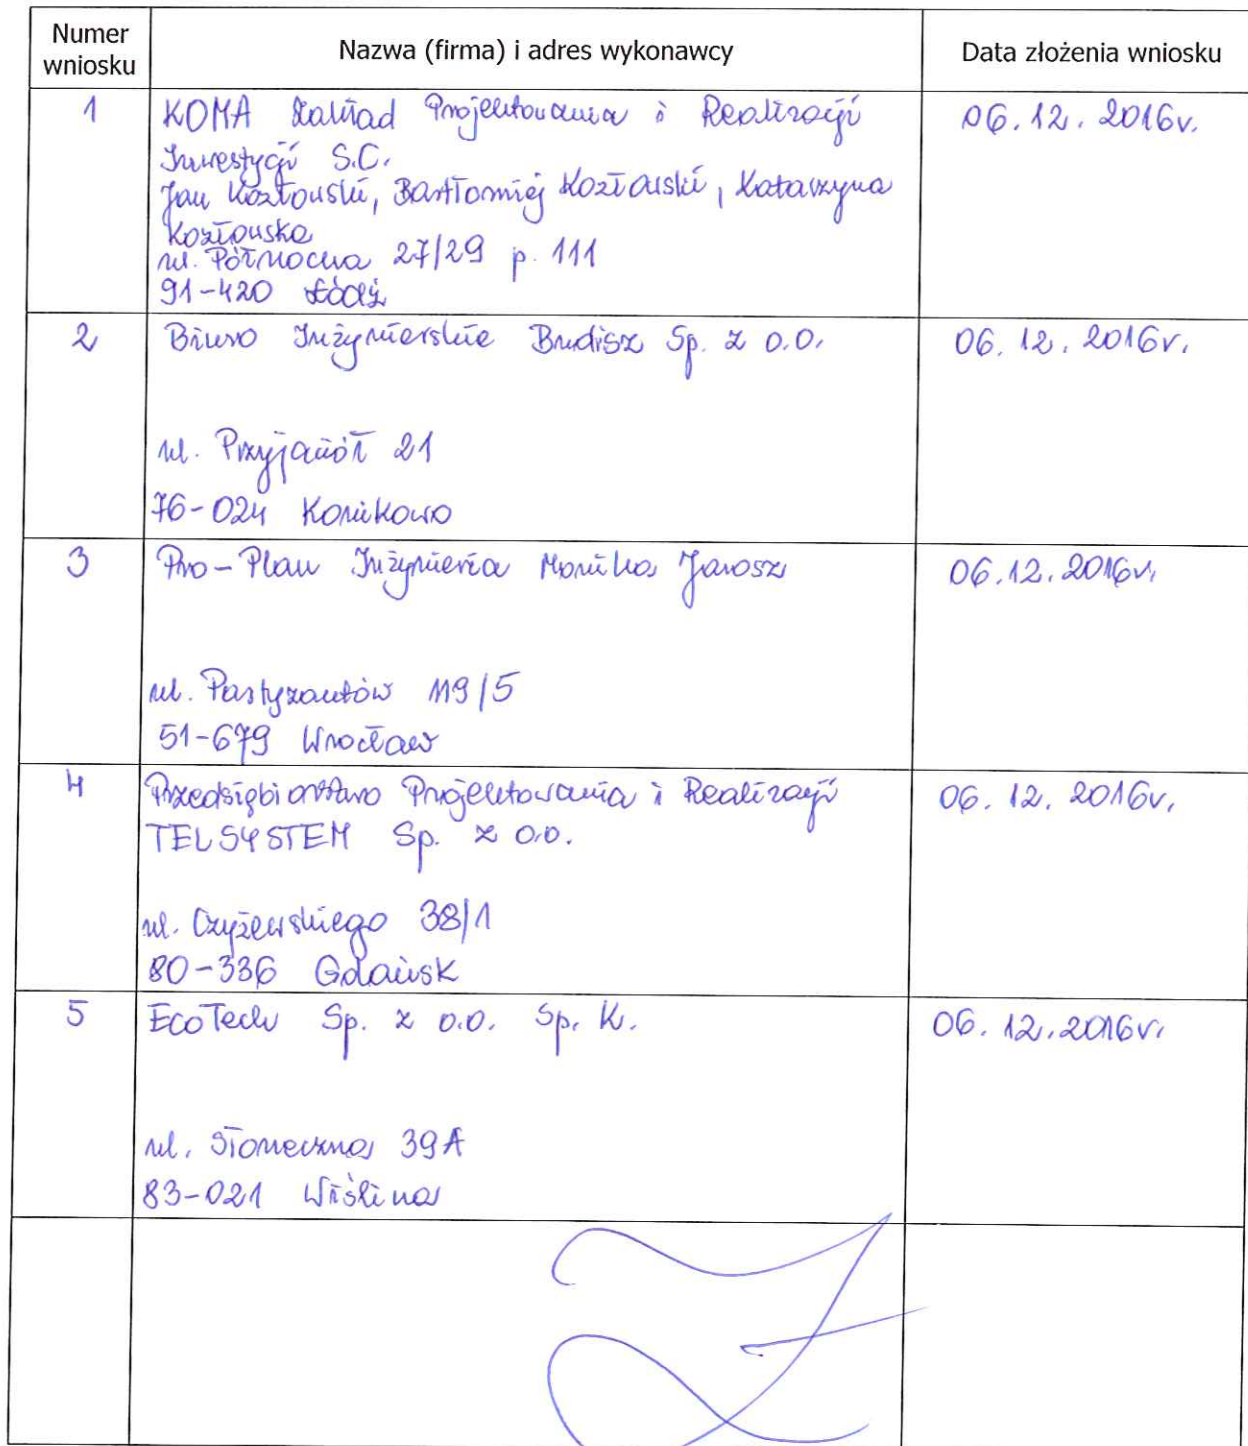 Numer wniosku
Nazwa (firma) i adres wykonawcy
Data złożenia wniosku
1
KOMA Zakład Projektowania i Realizacji
Inwestycji S.C.
Jan Kozłowski, Bartłomiej Kozłowski, Katarzyna
Kozłowska
ul. Północna 27/29 p. 111
91-420 Łódź
06.12.2016r.
2
Biuro Inżynierskie Brudisz Sp. z o.o.
ul. Przyjaciół 21
76-024 Konikowo
06.12.2016r.
3
Pro-Plan Inżynieria Monika Jarosz
ul. Partyzantów 119/5
51-679 Wrocław
06.12.2016r.
4
Przedsiębiorstwo Projektowania i Realizacji
TELSYSTEM Sp. z o.o.
ul. Czyżewskiego 38/1
80-336 Gdańsk
06.12.2016r.
5
EcoTech Sp. z o.o. Sp. K.
ul. Słoneczna 39A
83-021 Wiślina
06.12.2016r.